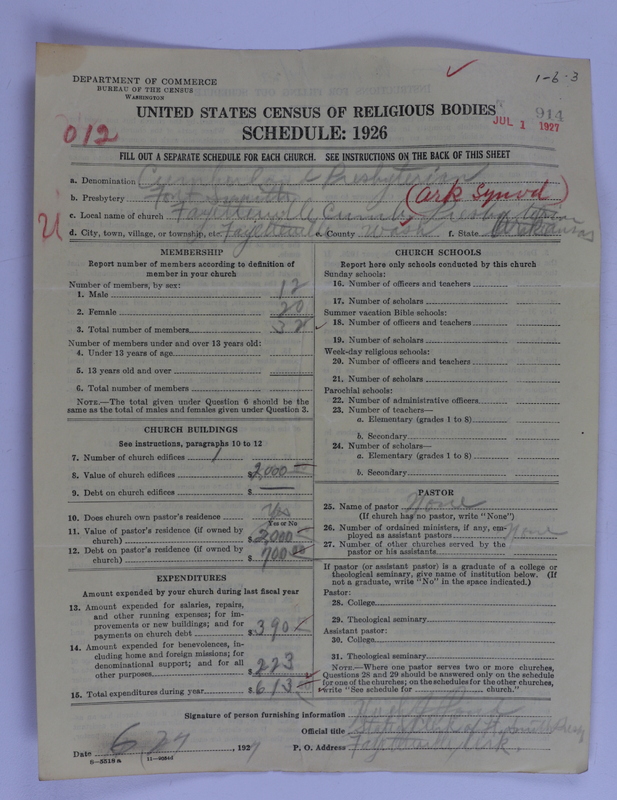 1-6-3
DEPARTMENT OF COMMERCE
BUREAU OF THE CENSUS
WASHINGTON
UNITED STATES CENSUS OF RELIGIOUS BODIES
914
JUL 1 1927
012
SCHEDULE: 1926
FILL OUT A SEPARATE SCHEDULE FOR EACH CHURCH. SEE INSTRUCTIONS ON THE BACK OF THIS SHEET
a. Denomination Cumberland Presbyterian
b. Presbytery Fort Smith (Ark Synod)
c. Local name of church Fayetteville Cumb Presby
d. City, town, village, or township, etc. Fayetteville e. County Wash f. State Arkansas
MEMBERSHIP
Report number of members according to definition of
member in your church
Number of members, by sex:
1. Male 12
2. Female 20
3. Total number of members 32
Number of members under and over 13 years old:
4. Under 13 years of age
5. 13 years old and over
6. Total number of members
NOTE.—The total given under Question 6 should be the
same as the total of males and females given under Question 3.
CHURCH BUILDINGS
See instructions, paragraphs 10 to 12
7. Number of church edifices 1
8. Value of church edifices $2,000
9. Debt on church edifices $
10. Does church own pastor's residence Yes
Yes or No
11. Value of pastor's residence (if owned by
church) $2,000
12. Debt on pastor's residence (if owned by
church) $700.00
EXPENDITURES
Amount expended by your church during last fiscal year
13. Amount expended for salaries, repairs,
and other running expenses; for im-
provements or new buildings; and for
payments on church debt $390
14. Amount expended for benevolences, in-
cluding home and foreign missions; for
denominational support; and for all
other purposes $223
15. Total expenditures during year $613
CHURCH SCHOOLS
Report here only schools conducted by this church
Sunday schools:
16. Number of officers and teachers
17. Number of scholars
Summer vacation Bible schools:
18. Number of officers and teachers
19. Number of scholars
Week-day religious schools:
20. Number of officers and teachers
21. Number of scholars
Parochial schools:
22. Number of administrative officers
23. Number of teachers—
a. Elementary (grades 1 to 8)
b. Secondary
24. Number of scholars—
a. Elementary (grades 1 to 8)
b. Secondary
PASTOR
25. Name of pastor None
(If church has no pastor, write "None")
26. Number of ordained ministers, if any, em-
ployed as assistant pastors None
27. Number of other churches served by the
pastor or his assistants
If pastor (or assistant pastor) is a graduate of a college or
theological seminary, give name of institution below. (If
not a graduate, write "No" in the space indicated.)
Pastor:
28. College
29. Theological seminary
Assistant pastor:
30. College
31. Theological seminary
NOTE.—Where one pastor serves two or more churches,
Questions 28 and 29 should be answered only on the schedule
for one of the churches; on the schedules for the other churches,
write "See schedule for church."
Signature of person furnishing information
Official title Stated Clerk of Ft. Smith Presby
Date 6 27, 1927 P. O. Address Fayetteville, Ark.
8-5518a